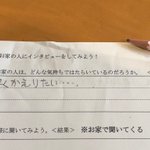 お家の人にインタビューをしてみよう！
お家の人は、どんな気持ちではたらいているのだろうか。
くかえりたい…。
に聞いてみよう。＜結果＞ ※お家で聞いてくる